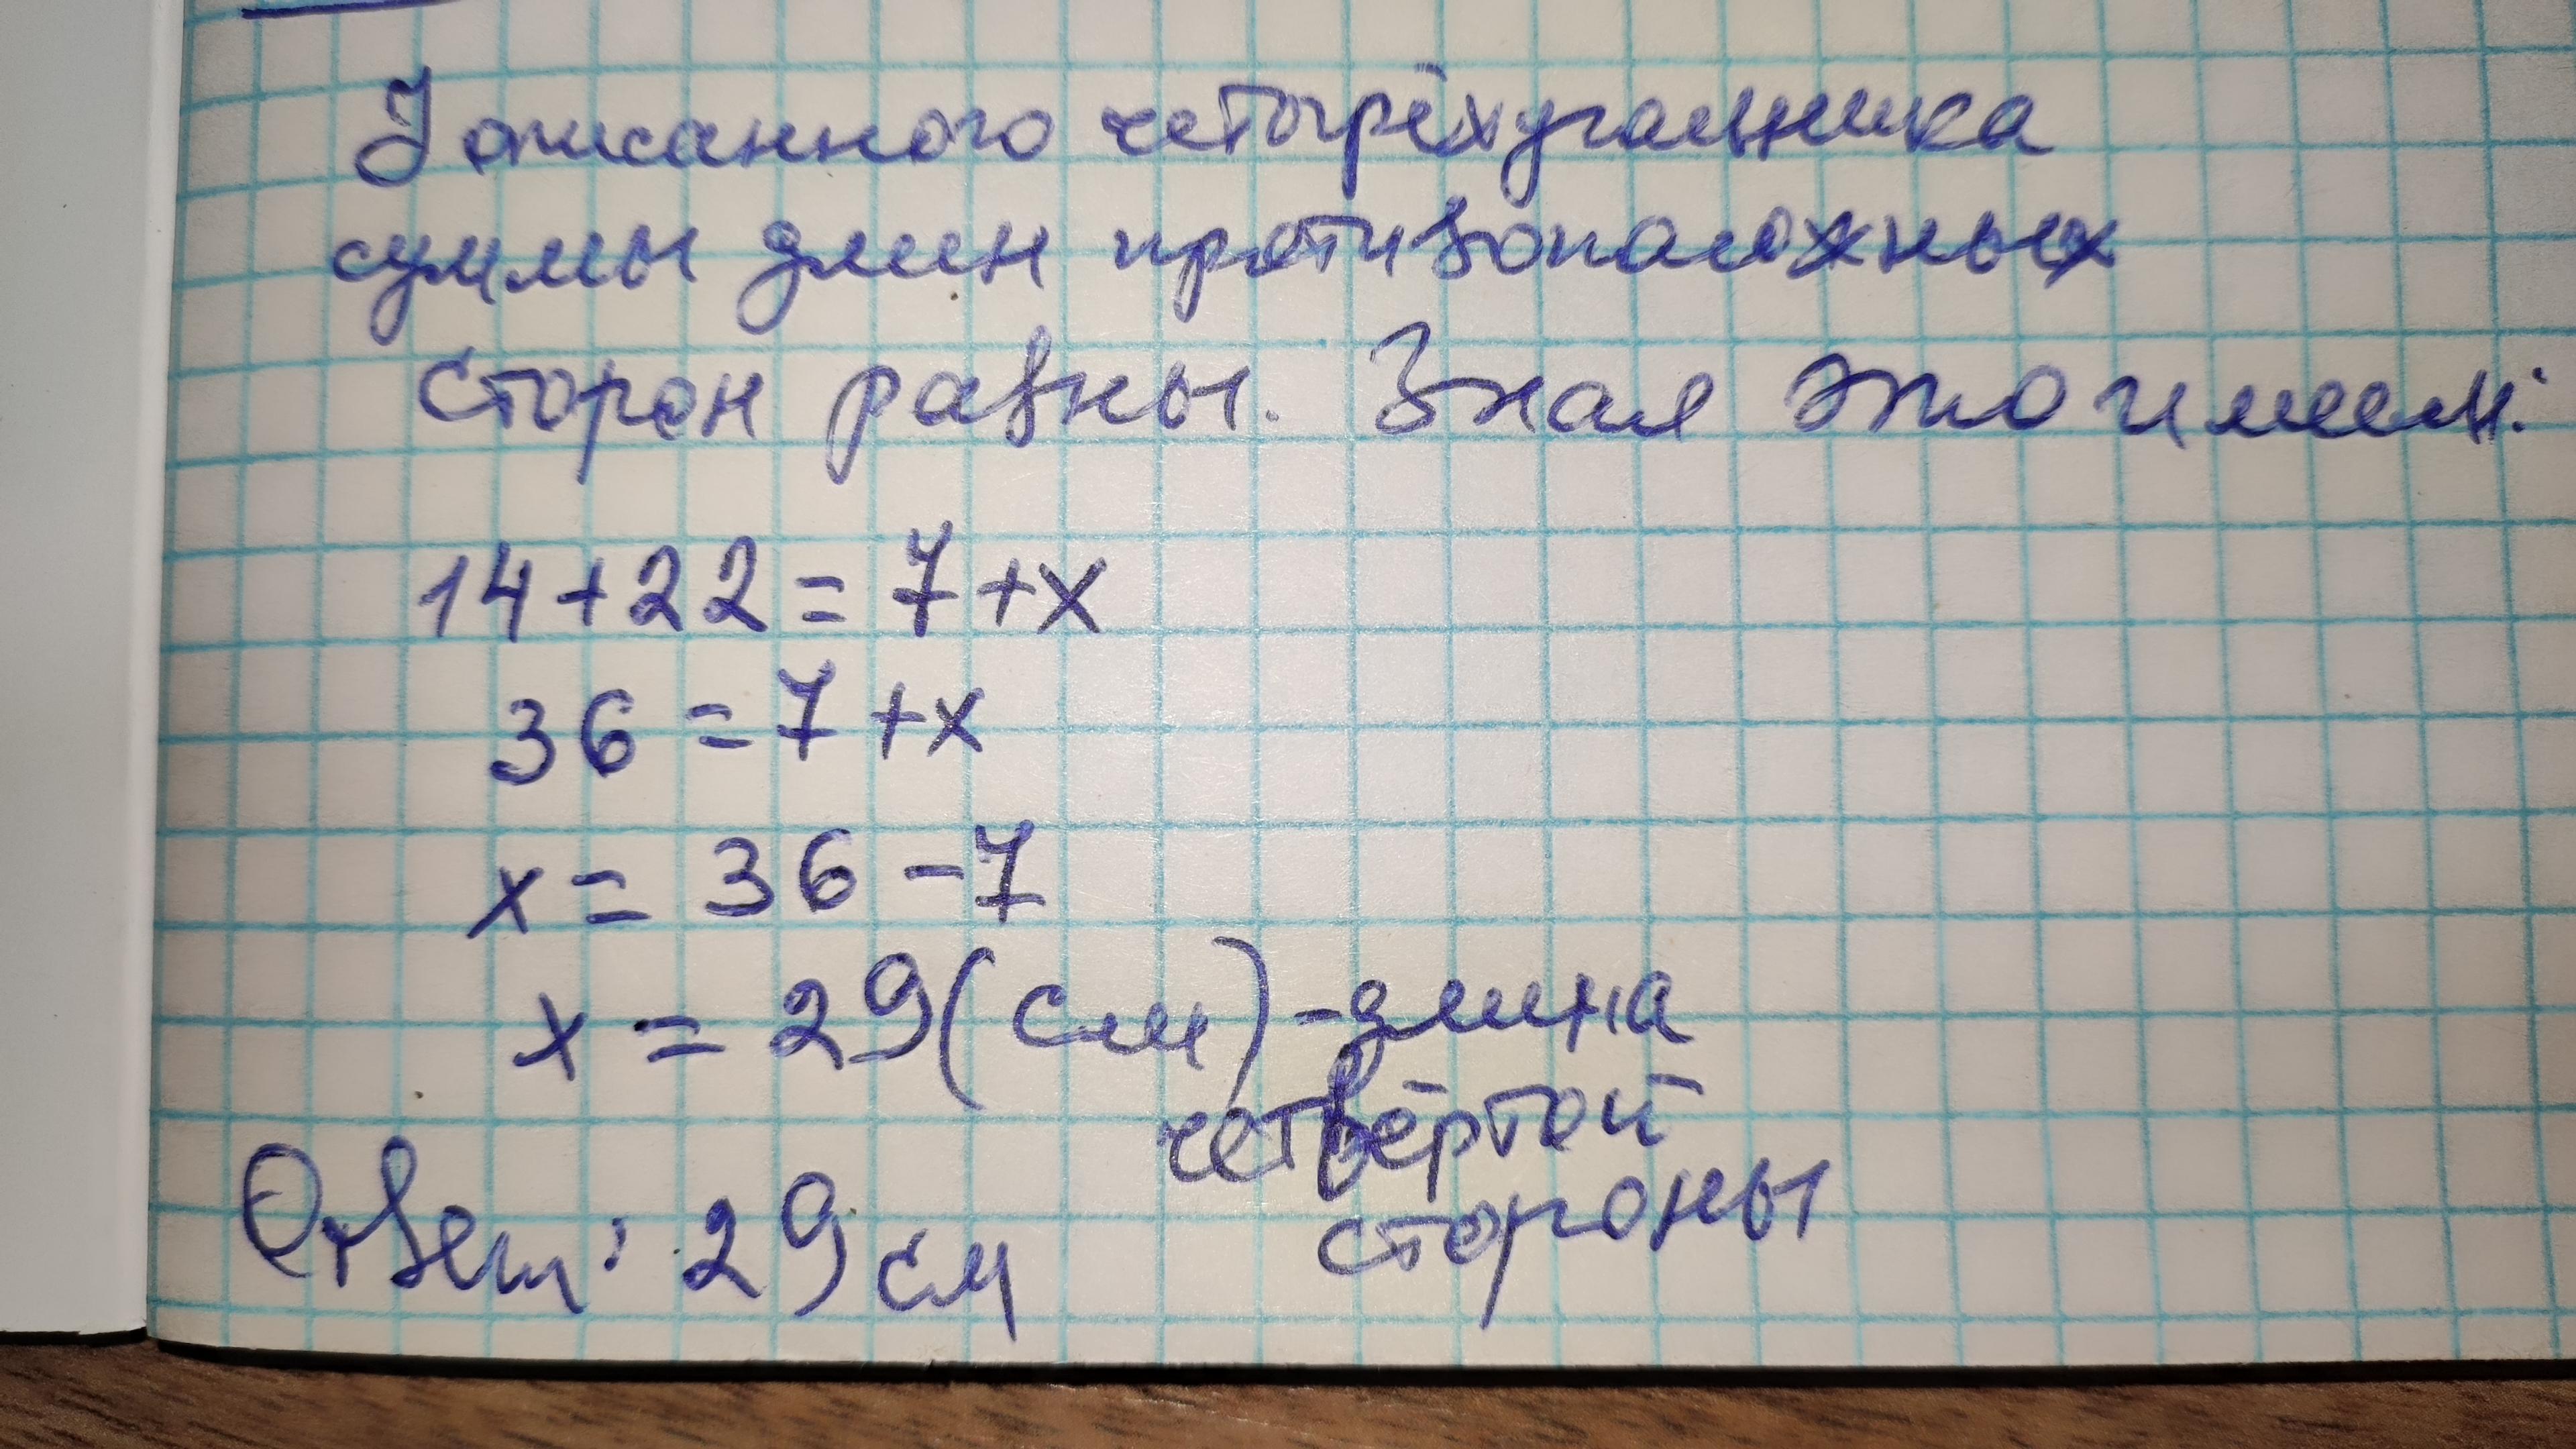 У описанного четырёхугольника
суммы длин противоположных
сторон равны. Зная это имеем:
14+22=7+x
36=7+x
x=36-7
x=29(см)-длина
четвёртой
стороны
Ответ: 29см